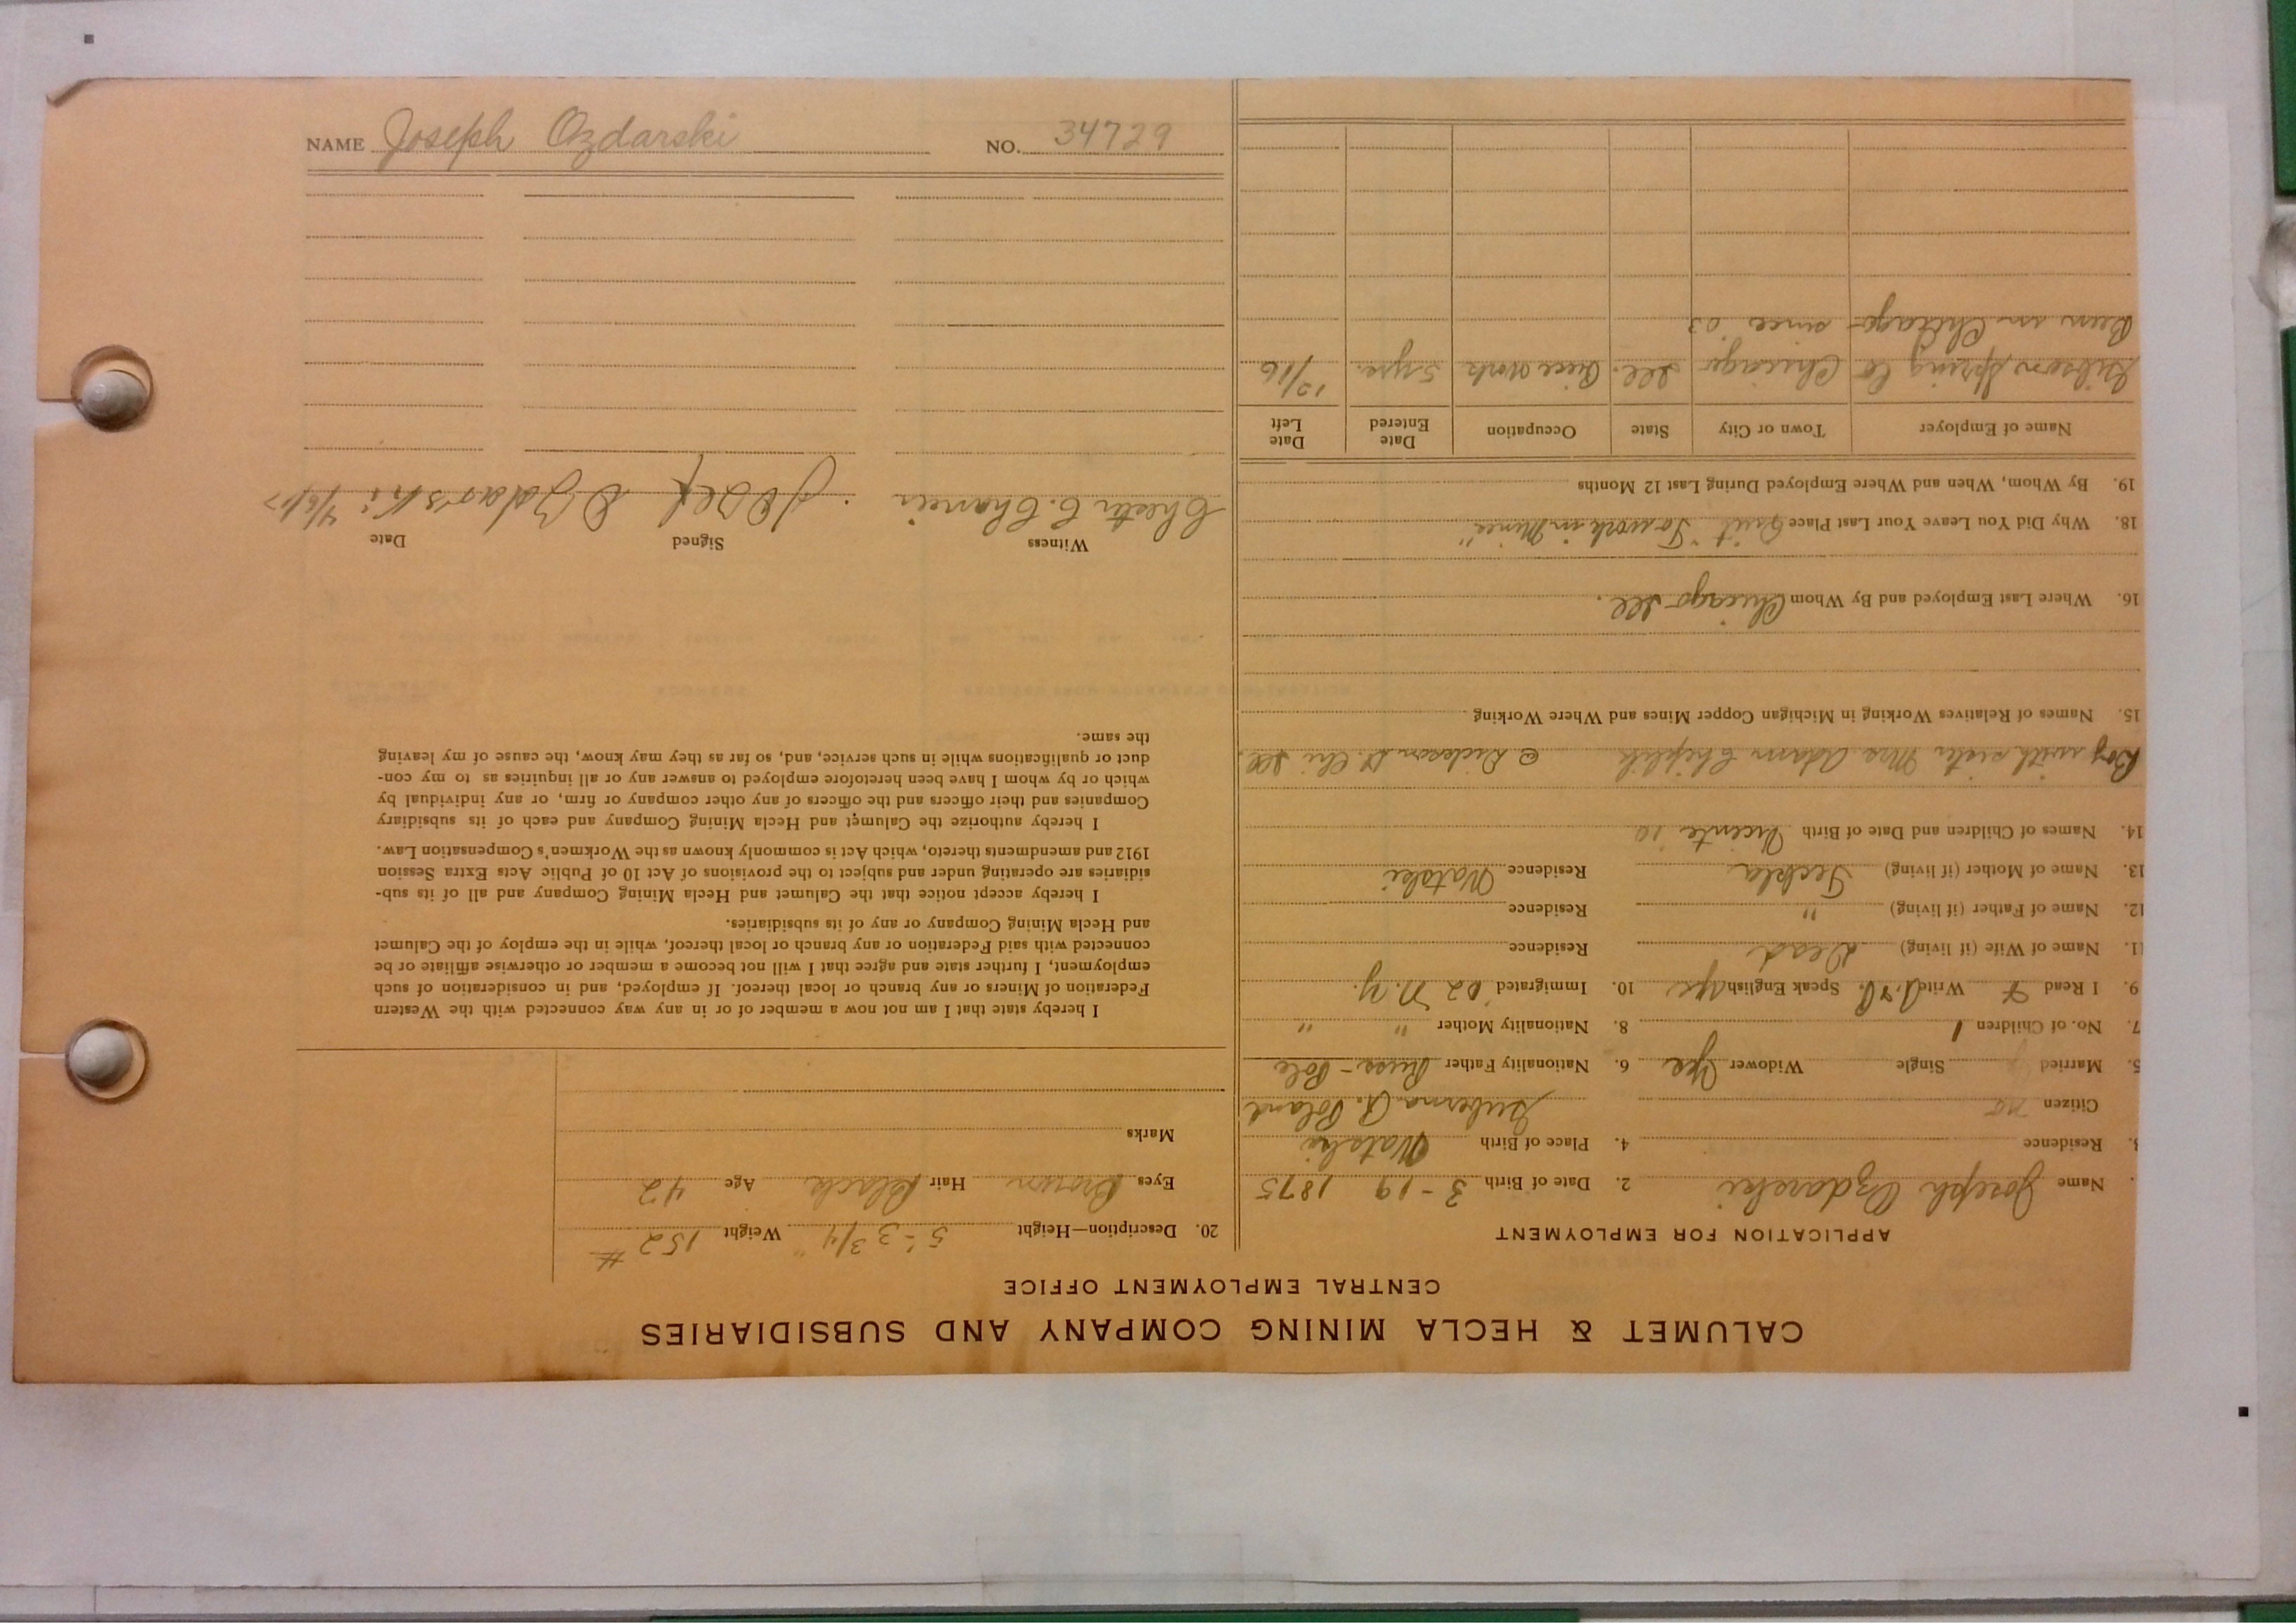 NAME Joseph Ozdarski NO. 34729
CALUMET & HECLA MINING COMPANY AND SUBSIDIARIES
CENTRAL EMPLOYMENT OFFICE
APPLICATION FOR EMPLOYMENT
Name Joseph Ozdarski 2. Date of Birth 3-19 1875
3. Residence 4. Place of Birth Watski
Citizen no Guberna R. Poland
5. Married Single Widower Yes 6. Nationality Father Russ-Pole
7. No. of Children 1 8. Nationality Mother " "
9. I Read & Write Speak English Yes 10. Immigrated '02 N.Y.
11. Name of Wife (if living) Dead Residence
12. Name of Father (if living) " Residence
13. Name of Mother (if living) Teckla Residence Watski
14. Names of Children and Date of Birth Vicenta 10
Boy with sister Mrs Adam @ Dickson St. Chi Ill.
15. Names of Relatives Working in Michigan Copper Mines and Where Working
16. Where Last Employed and By Whom Chicago Ill.
18. Why Did You Leave Your Last Place Quit "To work in Mines"
19. By Whom, When and Where Employed During Last 12 Months
Name of Employer Town or City State Occupation Date Entered Date Left
Gibson Spring Co Chicago Ill. Piece Work 5 yrs. 12/16
Been in Chicago since '03
20. Description—Height 5'-3 3/4" Weight 152 #
Eyes Brown Hair Black Age 42
Marks
I hereby state that I am not now a member of or in any way connected with the Western
Federation of Miners or any branch or local thereof. If employed, and in consideration of such
employment, I further state and agree that I will not become a member or otherwise affiliate or be
connected with said Federation or any branch or local thereof, while in the employ of the Calumet
and Hecla Mining Company or any of its subsidiaries.
I hereby accept notice that the Calumet and Hecla Mining Company and all of its sub-
sidiaries are operating under and subject to the provisions of Act 10 of Public Acts Extra Session
1912 and amendments thereto, which Act is commonly known as the Workmen's Compensation Law.
I hereby authorize the Calumet and Hecla Mining Company and each of its subsidiary
Companies and their officers and the officers of any other company or firm, or any individual by
which or by whom I have been heretofore employed to answer any or all inquiries as to my con-
duct or qualifications while in such service, and, so far as they may know, the cause of my leaving
the same.
Witness Signed Date
Chester C. Josef Ozdarski 4/6/17